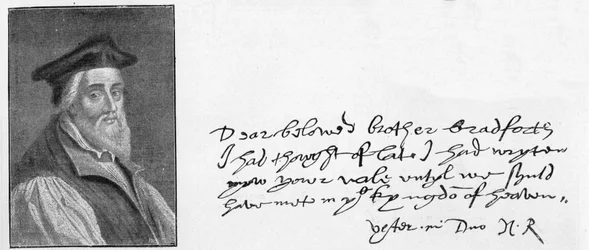 Dear beloved brother Bradforth
I had thought of late I had wryten
yowr vale untyl we shuld
have mete in yᵉ kyngdō of heaven,,
vester in Dno N. R